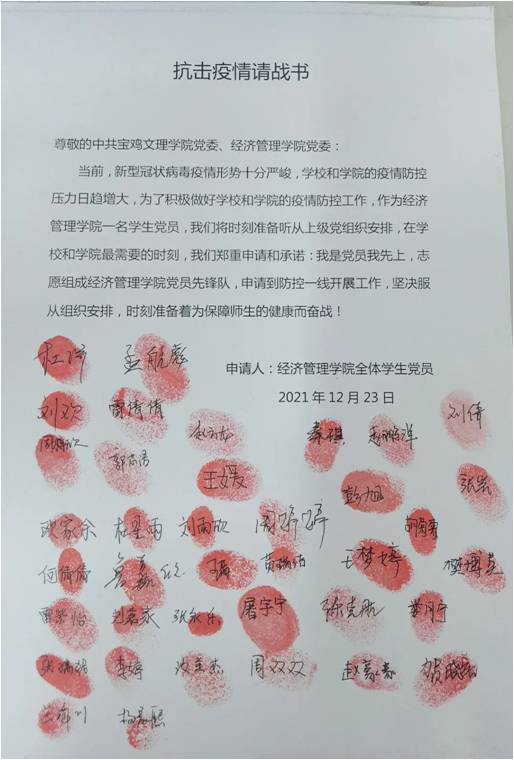 抗击疫情请战书
尊敬的中共宝鸡文理学院党委、经济管理学院党委：
当前，新型冠状病毒疫情形势十分严峻，学校和学院的疫情防控
压力日趋增大，为了积极做好学校和学院的疫情防控工作，作为经济
管理学院一名学生党员，我们将时刻准备听从上级党组织安排，在学
校和学院最需要的时刻，我们郑重申请和承诺：我是党员我先上，志
愿组成经济管理学院党员先锋队，申请到防控一线开展工作，坚决服
从组织安排，时刻准备着为保障师生的健康而奋战！
申请人：经济管理学院全体学生党员
2021年12月23日
孟航彪
刘欢 雷倩倩 秦祺 刘倩
王媛 彭旭 张岩
欧家余 杜星雨 刘雨欣 周婷婷
何倩倩 王梦婷 樊博莹
刘家永 张永乐 屠宇宁 徐克航
李婷 周双双